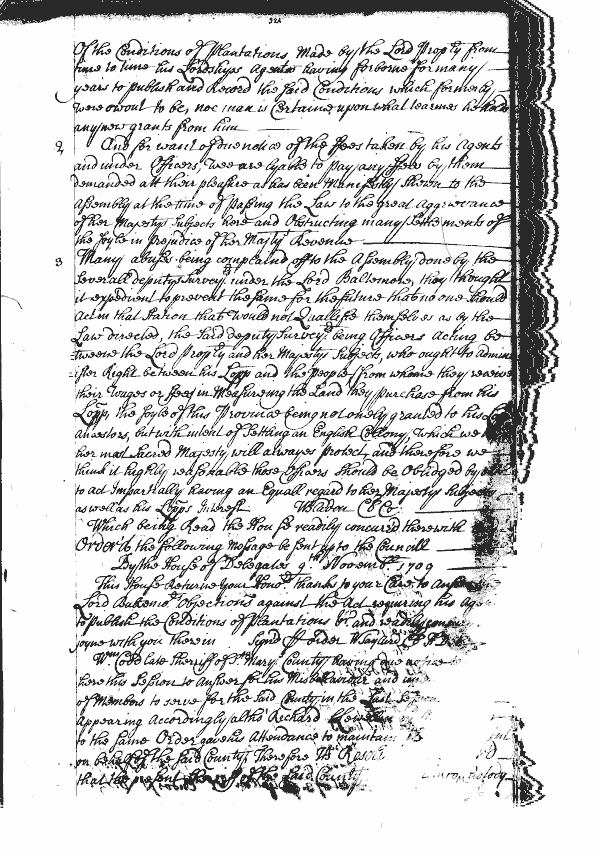 324
Of the Conditions of Plantations made by the Lord Propty from
time to time his Lordships Agents having forborne for many
years to publish and Record the said Conditions which formerly
were wont to be, noe man is Certaine upon what tearmes he
any new grants from him
2 And for want of due notice of the ffees taken by his Agents
and under Officers, wee are lyable to pay any ffees by them
demanded att their pleasure as has been Manifestly shown to the
Assembly at the time of passing the Law to the great Aggrievance
of her Majestys Subjects here and Obstructing many Settlements of
the soyle in prejudice of her Majtys Revenue
3 Many abuses being complained off to the Assembly done by the
severall deputy Surveyrs under the Lord Baltemore, they thought
it expedient to prevent the same for the future that no one should
Act in that Station that would not Quallifie themselves as by the
Law directed, the said deputy Surveyrs being Officers Acting be
=tweene the Lord Propty and her Majestys Subjects, who ought to admin
=ister Right between his Lopp and the people from whome they receive
their Wages or ffees in Measureing the Land they purchase from his
Lopp, the soyle of this Province being not onely granted to his
Ancestors, but with intent of Settling an English Collony, which we
her most Sacred Majesty will alwayes protect, and therefore we
think it highly reasonable those Officers should be Obidged by
to act Impartially having an Equall regard to her Majestys Subjects
as well as his Lopps Interest
Which being Read the House readily concurrd therewith
Orderd the following Message be sent up to the Councill
By the House of Delegates 9th Novembr 1709
This House Returne your Honrs thanks to your Care to
Lord Baltemores Objections against the Act requiring his
to publish the Conditions of Plantations &c. and readily
joyne with you therein Signd p order W Taylard
Wm Codd late Sherriff of St Marys County having due notice
here this Session to Answer for his Misbehaviour and in
of Members to serve for the said County in the Last Session
Appearing Accordingly also Richard
to the same Order gave his Attendance to maintain
on behalf of the said County, Therefore Its
that the present Sherriff of the said County Custody